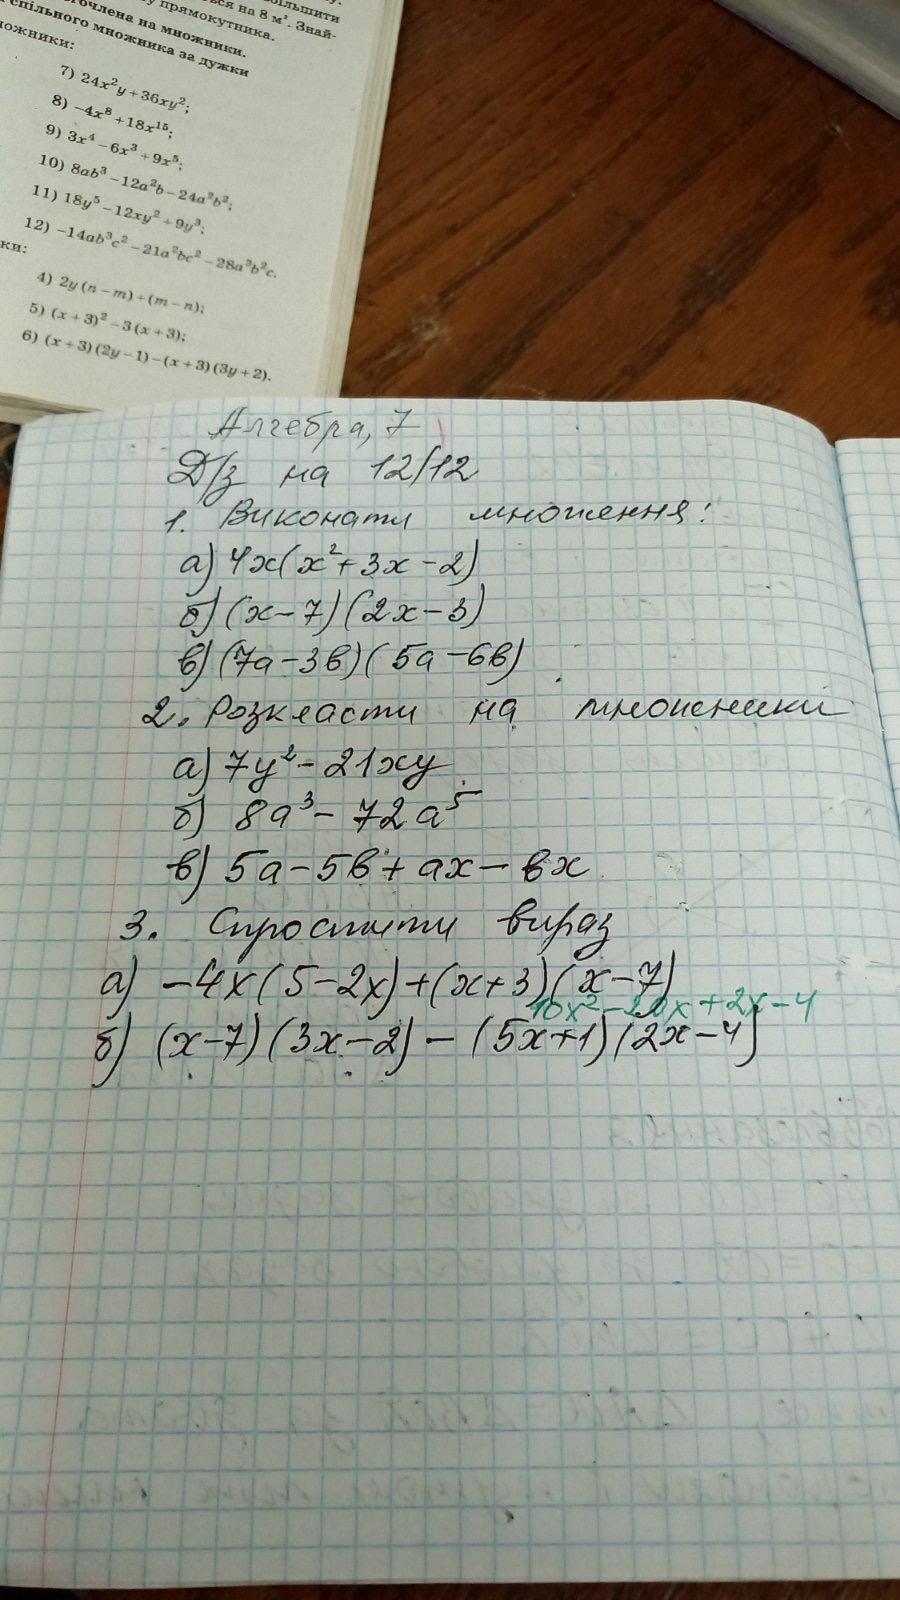 більшити
ться на 8 м². Знай-
у прямокутника.
гочлена на множники.
спільного множника за дужки
ножники:
7) 24x²y + 36xy²;
8) −4x⁸ + 18x¹⁵;
9) 3x⁴ − 6x³ + 9x⁵;
10) 8ab³ − 12a²b − 24a²b²;
11) 18y⁵ − 12xy² + 9y³;
12) −14ab³c² − 21a²bc² − 28a³b²c.
ки:
4) 2y(n − m) + (m − n);
5) (x + 3)² − 3(x + 3);
6) (x + 3)(2y − 1) − (x + 3)(3y + 2).
Алгебра, 7
Д/з на 12/12
1. Виконати множення:
а) 4x(x² + 3x − 2)
б) (x − 7)(2x − 3)
в) (7a − 3в)(5a − 6в)
2. Розкласти на множники
а) 7y² − 21xy
б) 8a³ − 72a⁵
в) 5a − 5в + ax − вx
3. Спростити вираз
а) −4x(5 − 2x) + (x + 3)(x − 7)
10x² − 20x + 2x − 4
б) (x − 7)(3x − 2) − (5x + 1)(2x − 4)